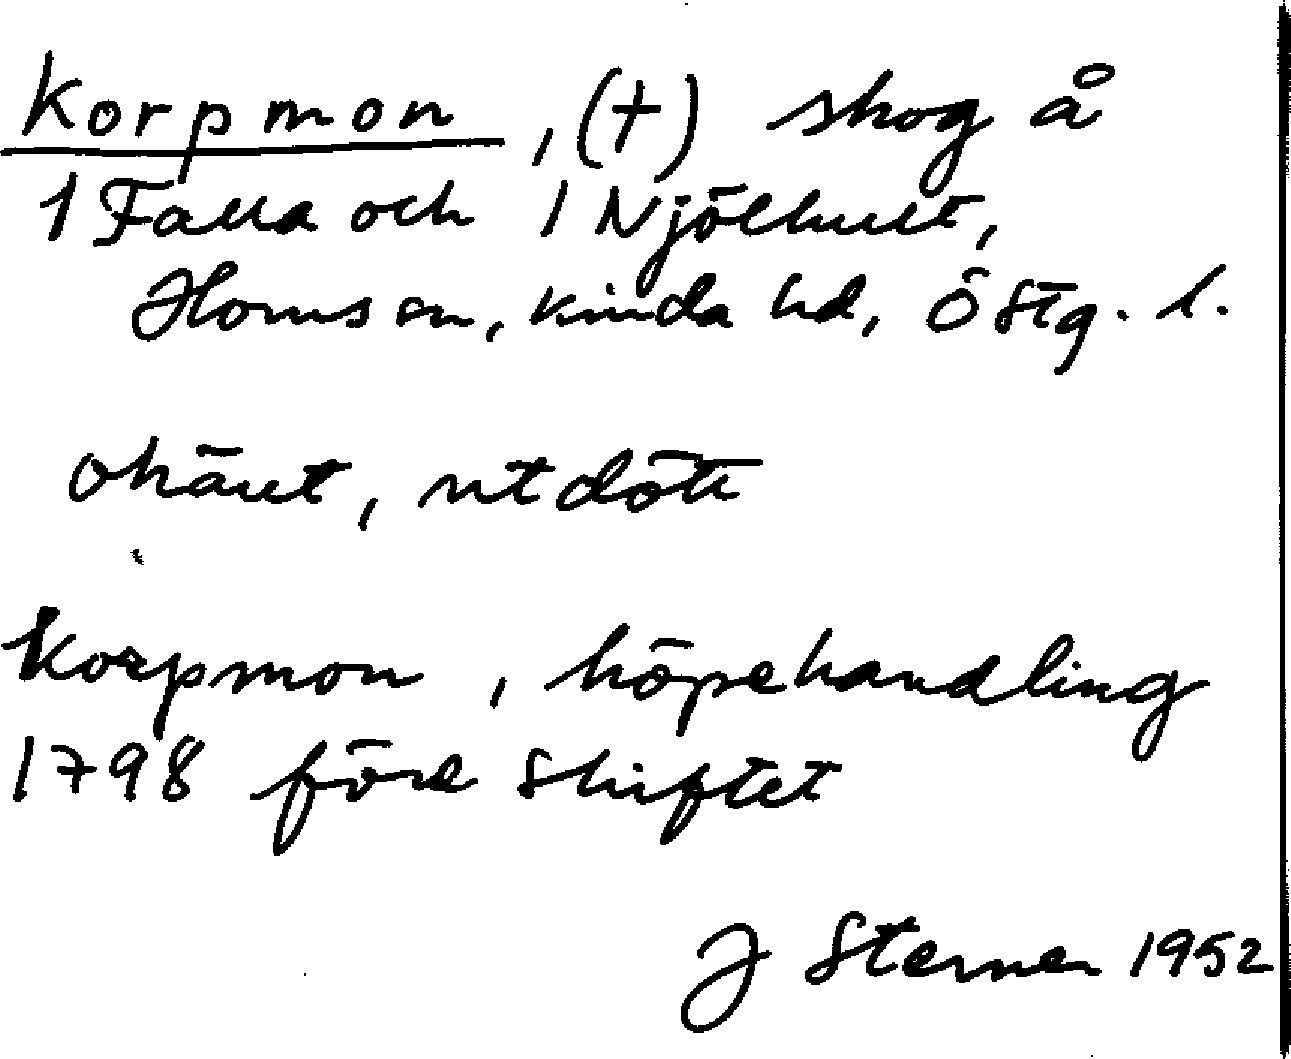 Korpmon, (†) skog å
1 Falla och 1 Njölhult,
Horns sn, Kinda hd, Östg. l.
okänt, utdött
Korpmon, köpehandling
1798 före skiftet
J Sterner 1952